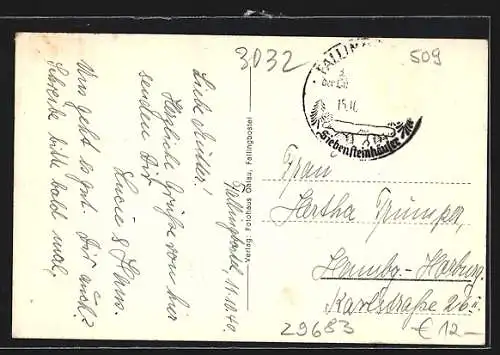 3032
509
FALLIN
Siebensteinhäuser
15.11.
Fallingbostel, 11.10.40.
Liebe Mutter!
Herzliche Grüße von hier
senden Dir
Lucie & Herm.
Uns geht es gut. Dir auch?
Schreibe bitte bald mal,
Verlag: Fotohaus Gehr. Fallingbostel
Frau
Hertha Trümper,
Hambg-Harburg
Karlstraße 26 II
29683
€ 12,-